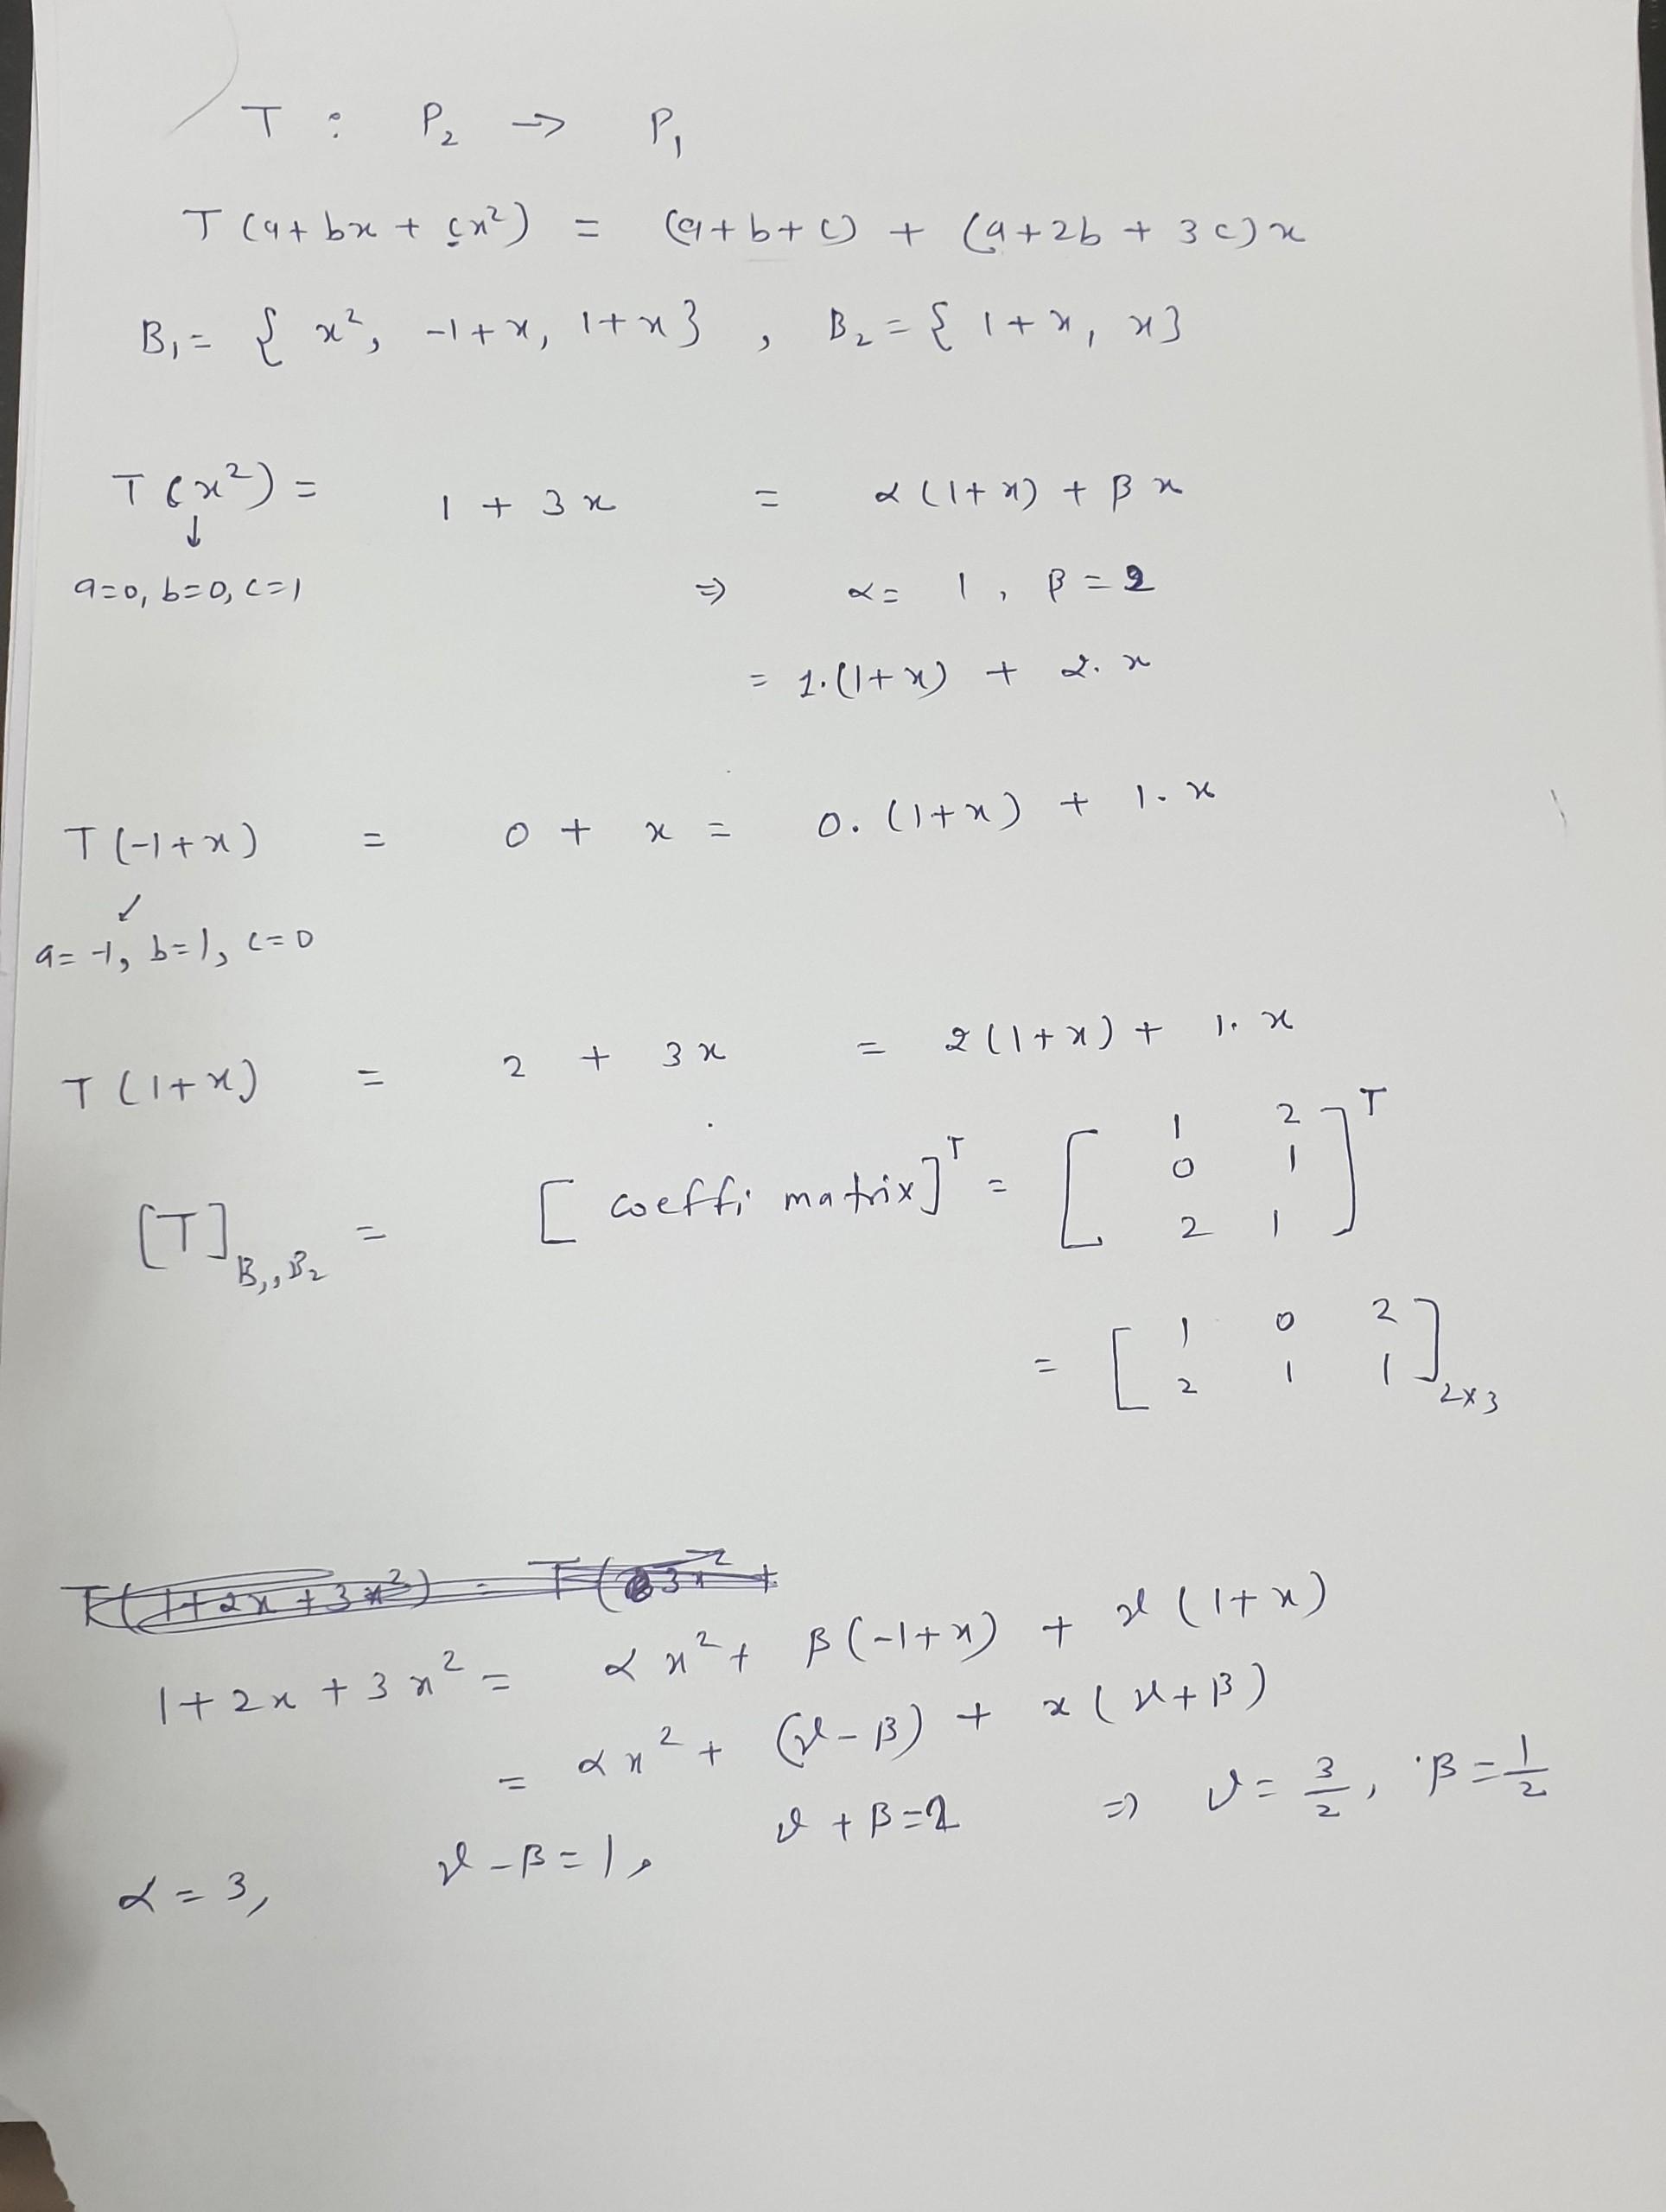 T : P₂ → P₁
T(a+bx+cx²) = (a+b+c) + (a+2b+3c)x
B₁ = { x², -1+x, 1+x} , B₂ = { 1+x, x}
T(x²) = 1 + 3x = α(1+x) + βx
↓
a=0, b=0, c=1 ⇒ α = 1, β = 2
= 1.(1+x) + 2.x
T(-1+x) = 0 + x = 0.(1+x) + 1.x
↙
a=-1, b=1, c=0
T(1+x) = 2 + 3x = 2(1+x) + 1.x
[T]B₁,B₂ = [coeffi matrix]ᵀ = [1 2
0 1
2 1]ᵀ
= [1 0 2
2 1 1]2×3
T(1+2x+3x²) = T(3x² +
1+2x+3x² = αx² + β(-1+x) + γ(1+x)
= αx² + (γ-β) + x(γ+β)
α = 3, γ-β=1, γ+β=2 ⇒ γ = 3/2, β = 1/2